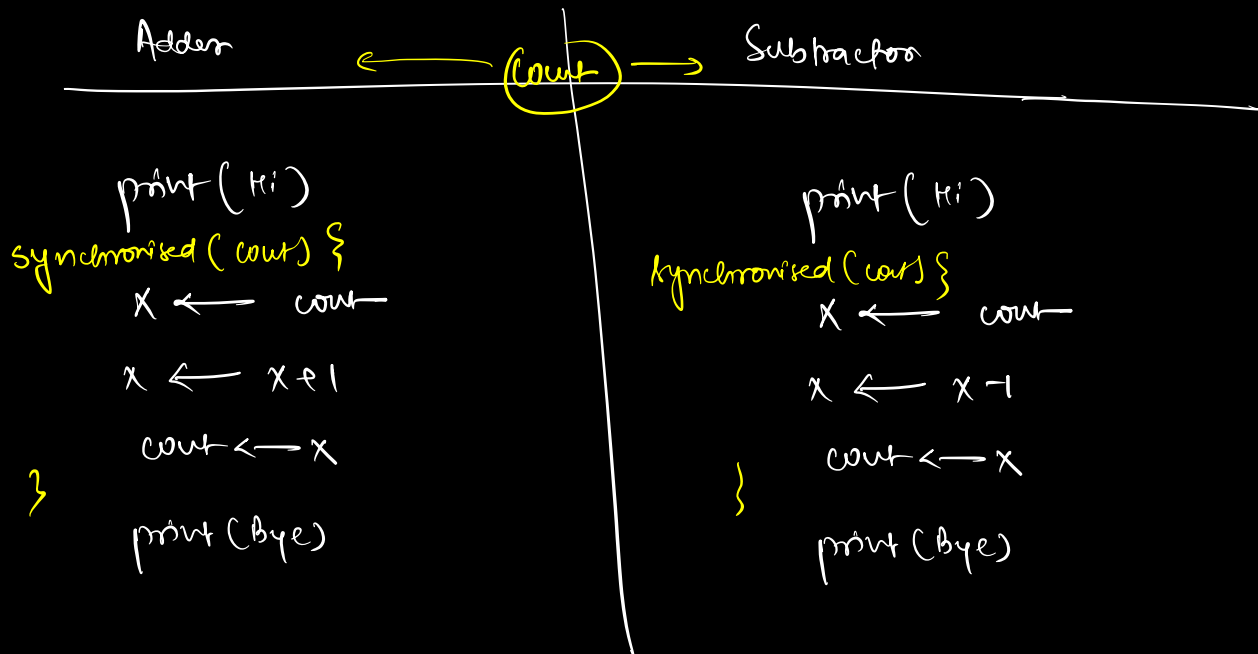 Adder
Count
Subtractor
print(Hi)
synchronised(count){
x ← count
x ← x+1
count ← x
}
print(Bye)
print(Hi)
synchronised(count){
x ← count
x ← x-1
count ← x
}
print(Bye)